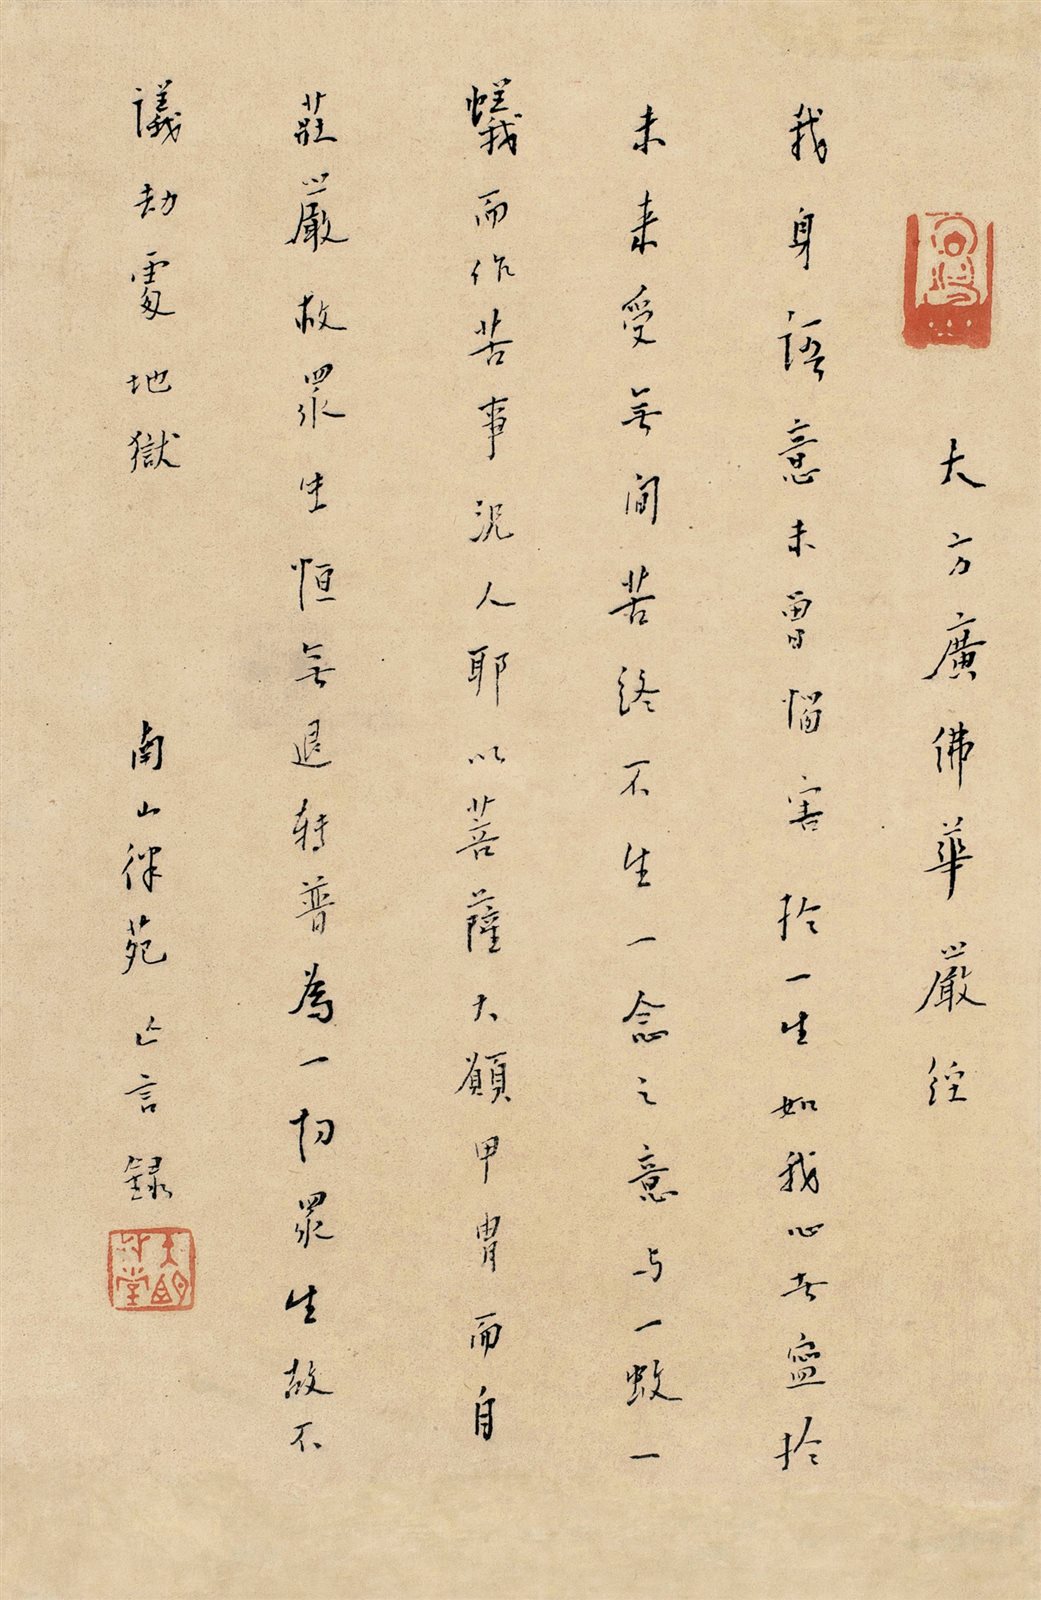 大方廣佛華嚴經
我身語意未曾惱害於一生如我心者寧於
未来受無間苦終不生一念之意与一蚊一
蟻而作苦事況人耶以菩薩大願甲冑而自
莊嚴救眾生恒無退轉普為一切眾生故不
議劫處地獄
南山律苑亡言録